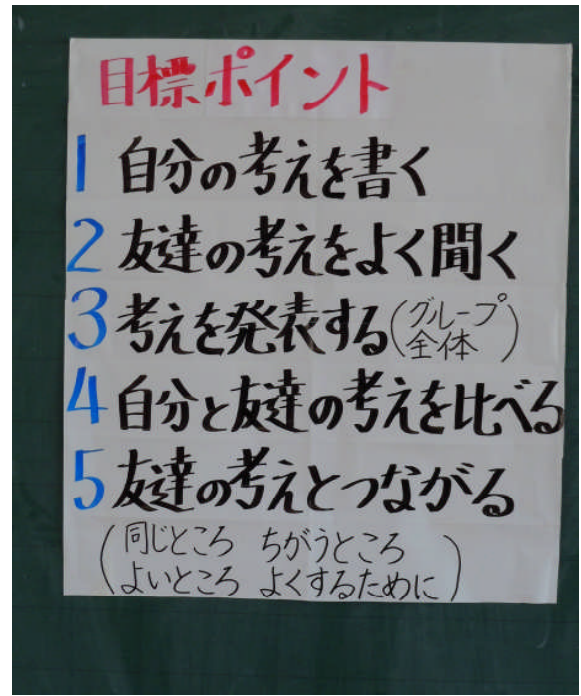 目標ポイント
1 自分の考えを書く
2 友達の考えをよく聞く
3 考えを発表する(グループ 全体)
4 自分と友達の考えを比べる
5 友達の考えとつながる
(同じところ ちがうところ
よいところ よくするために)